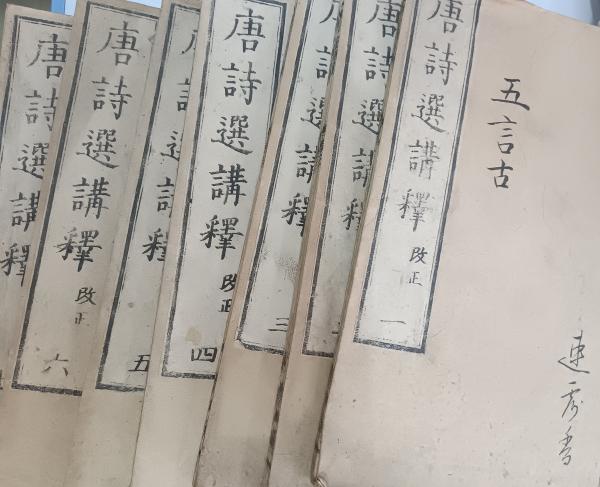 五言古
唐詩選講釋
改正
一
唐詩選講釋
二
唐詩選講釋
三
唐詩選講釋
改正
四
唐詩選講釋
五
唐詩選講釋
改正
六
唐詩選講釋